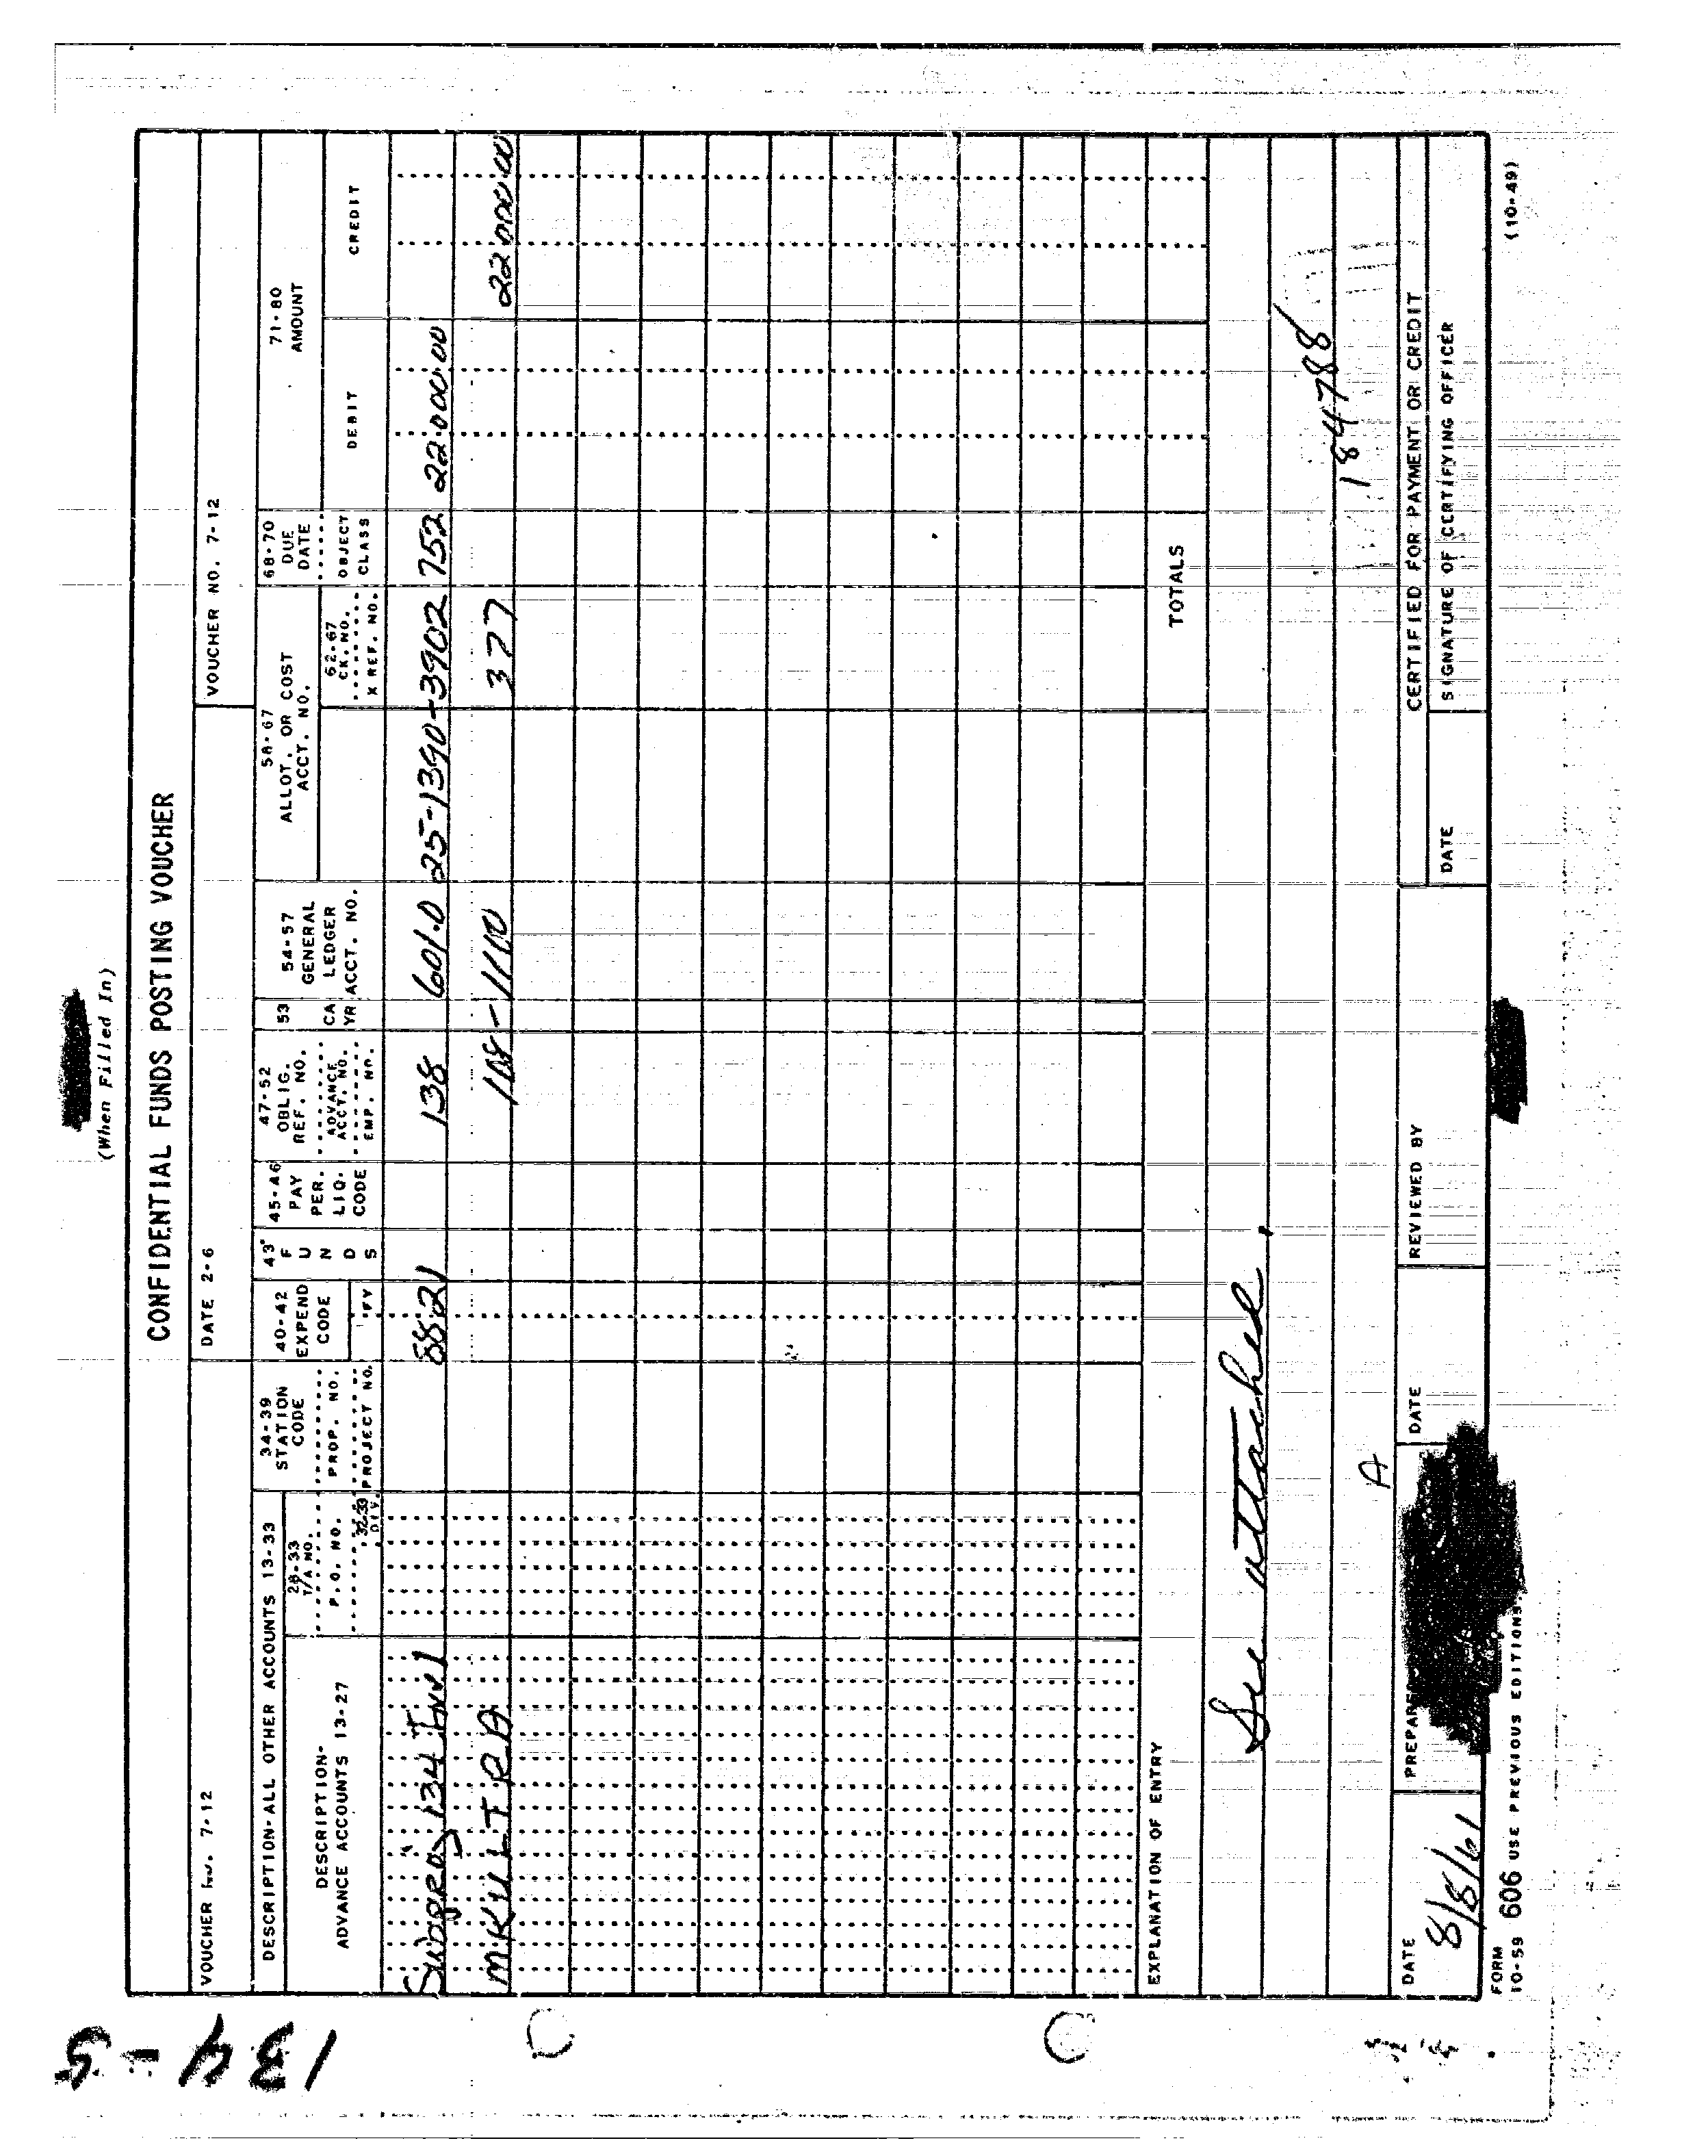 134-5
(When Filled In)
CONFIDENTIAL FUNDS POSTING VOUCHER
VOUCHER NO. 7-12
DATE 2-6
VOUCHER NO. 7-12
DESCRIPTION-ALL OTHER ACCOUNTS 13-33
DESCRIPTION-
ADVANCE ACCOUNTS 13-27
28-33
T/A NO.
P.O. NO.
32-33
DIV.
34-39
STATION
CODE
PROP. NO.
PROJECT NO.
40-42
EXPEND
CODE
FY
43
F
U
N
D
S
45-46
PAY
PER.
LIQ.
CODE
47-52
OBLIG.
REF. NO.
ADVANCE
ACCT. NO.
EMP. NO.
53
CA
YR
54-57
GENERAL
LEDGER
ACCT. NO.
58-67
ALLOT. OR COST
ACCT. NO.
62-67
CK. NO.
X REF. NO.
68-70
DUE
DATE
OBJECT
CLASS
71-80
AMOUNT
DEBIT
CREDIT
Subproj 134 Inv 1 8821 138 601.0 25-1390-3902 752 22 000 00
MKULTRA 108-1100 377 22 000 00
EXPLANATION OF ENTRY
TOTALS
See attached.
184788
A
DATE
8/8/61
DATE
REVIEWED BY
CERTIFIED FOR PAYMENT OR CREDIT
DATE
SIGNATURE OF CERTIFYING OFFICER
FORM
10-59 606 USE PREVIOUS EDITIONS.
(10-49)